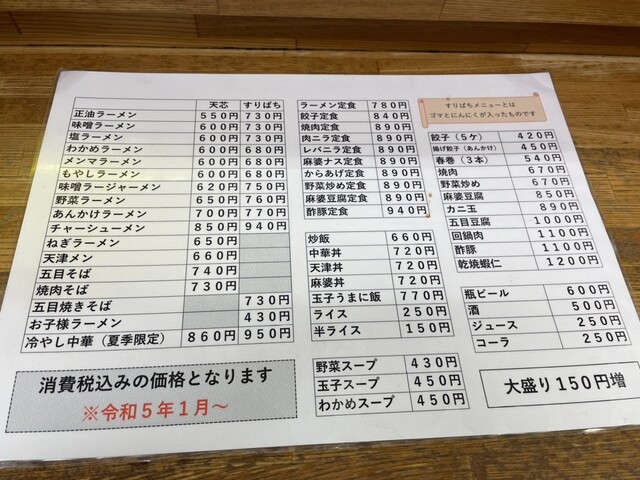 天芯 すりばち
正油ラーメン 550円 730円
味噌ラーメン 600円 730円
塩ラーメン 600円 730円
わかめラーメン 600円 680円
メンマラーメン 600円 680円
もやしラーメン 600円 680円
味噌ラージャーメン 620円 750円
野菜ラーメン 650円 760円
あんかけラーメン 700円 770円
チャーシューメン 850円 940円
ねぎラーメン 650円
天津メン 660円
五目そば 740円
焼肉そば 730円
五目焼きそば 730円
お子様ラーメン 430円
冷やし中華（夏季限定） 860円 950円
消費税込みの価格となります
※令和５年１月～
ラーメン定食 780円
餃子定食 840円
焼肉定食 890円
肉ニラ定食 890円
レバニラ定食 890円
麻婆ナス定食 890円
からあげ定食 890円
野菜炒め定食 890円
麻婆豆腐定食 890円
酢豚定食 940円
炒飯 660円
中華丼 720円
天津丼 720円
麻婆丼 720円
玉子うまに飯 770円
ライス 250円
半ライス 150円
野菜スープ 430円
玉子スープ 450円
わかめスープ 450円
すりばちメニューとは
ゴマとにんにくが入ったものです
餃子（５ケ） 420円
揚げ餃子（あんかけ） 450円
春巻（３本） 540円
焼肉 670円
野菜炒め 670円
麻婆豆腐 850円
カニ玉 890円
五目豆腐 1000円
回鍋肉 1100円
酢豚 1100円
乾焼蝦仁 1200円
瓶ビール 600円
酒 500円
ジュース 250円
コーラ 250円
大盛り150円増